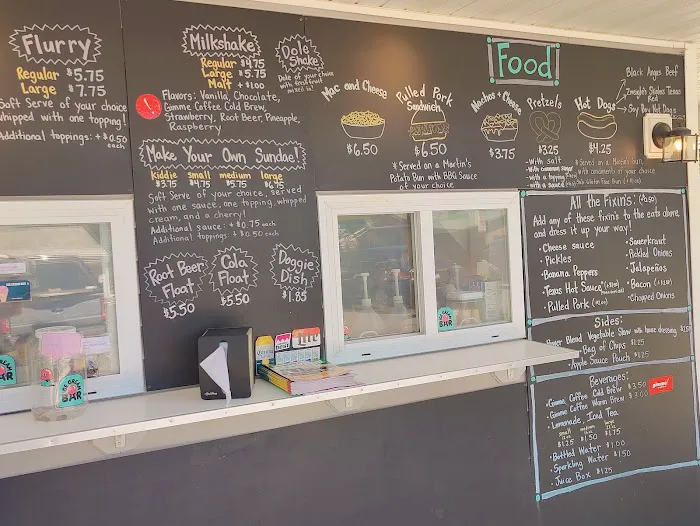 Flurry
Regular $5.75
Large $7.75
Soft Serve of your choice
whipped with one topping!
Additional toppings: +$0.50
each
Milkshake
Regular $4.75
Large $5.75
Malt + $1.00
Flavors: Vanilla, Chocolate,
Gimme Coffee Cold Brew,
Strawberry, Root Beer, Pineapple,
Raspberry
Dole
Shake
Dole of your choice
Make Your Own Sundae!
kiddie small medium large
$3.75 $4.75 $5.75 $6.75
Soft Serve of your choice, served
with one sauce, one topping, whipped
cream, and a cherry!
Additional sauce: +$0.75 each
Additional toppings: +$0.50 each
Root Beer
Float
$5.50
Cola
Float
$5.50
Doggie
Dish
$1.85
Food
Mac and Cheese
$6.50
Pulled Pork
Sandwich
$6.50
*Served on a Martin's
Potato Bun with BBQ Sauce
of your choice
Nachos + Cheese
$3.75
Pretzels
$3.25
-with Salt
-with a topping
-with a sauce
Hot Dogs
$4.25
Black Angus Beef
Texas
Red
Soy Boy Not Dogs
*Served on a Martin's bun,
with condiments of your choice
All the Fixin's:
Add any of these fixin's to the eats above
and dress it up your way!
• Cheese sauce
• Pickles
• Banana Peppers
• Texas Hot Sauce
• Pulled Pork
• Sauerkraut
• Pickled Onions
• Jalapeños
• Bacon
• Chopped Onions
Sides:
Blend Vegetable Slaw with house dressing
• Bag of Chips $1.25
• Apple Sauce Pouch $1.25
Beverages:
• Gimme Coffee Cold Brew $3.50
• Gimme Coffee Warm Brew $3.00
• Lemonade, Iced Tea
small medium large
$1.25 $1.50 $1.75
• Bottled Water $1.00
• Sparkling Water $1.50
• Juice Box $1.25
BAR
ICE CREAM
BAR